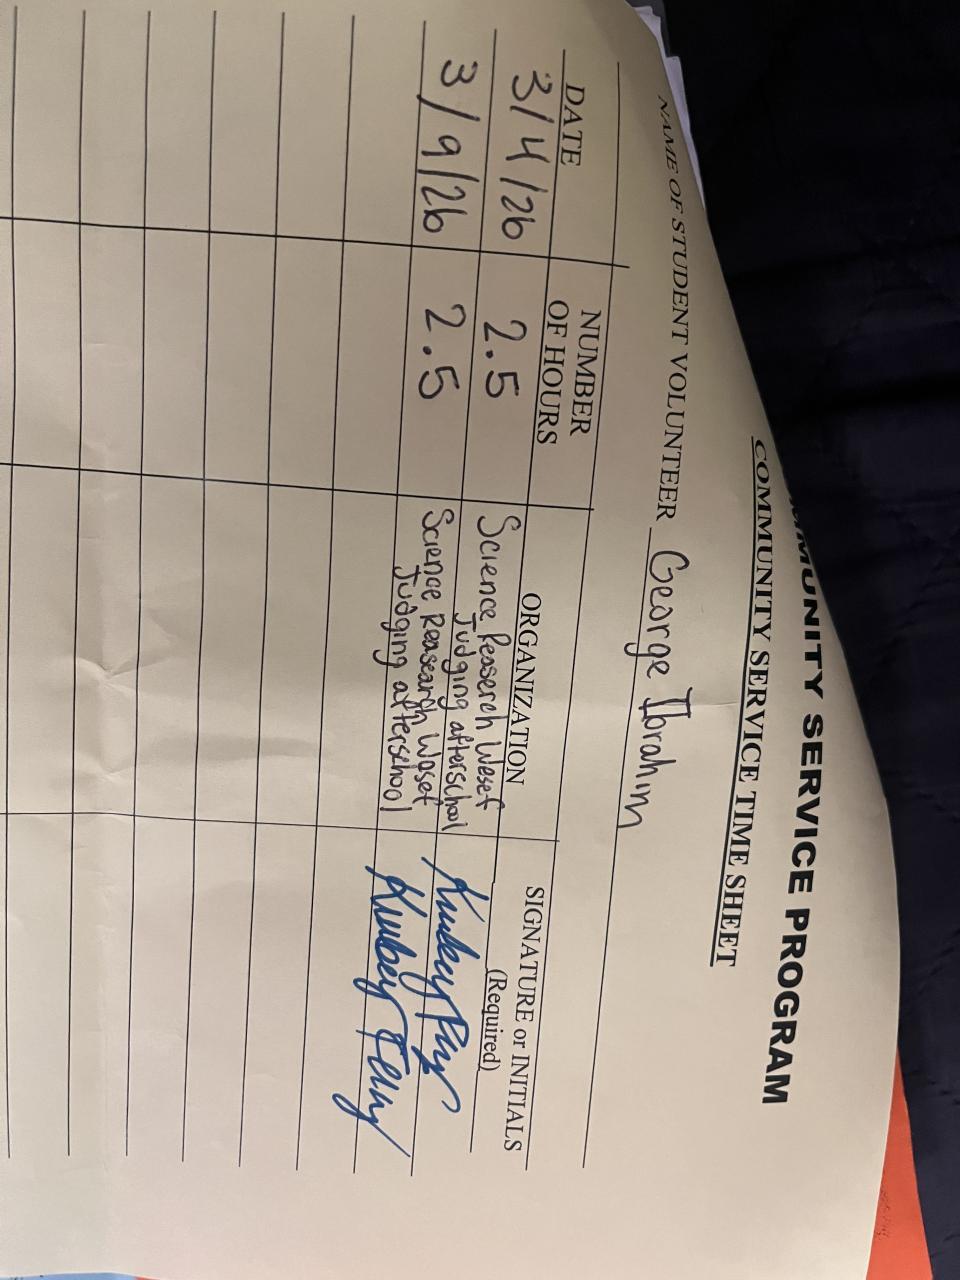 MMUNITY SERVICE PROGRAM
COMMUNITY SERVICE TIME SHEET
NAME OF STUDENT VOLUNTEER George Ibrahim
DATE
NUMBER
OF HOURS
ORGANIZATION
SIGNATURE or INITIALS
(Required)
3/4/26
2.5
Science Reaserch Wesef
Judging afterschool
3/9/26
2.5
Science Reasearch Wesef
Judging afterschool